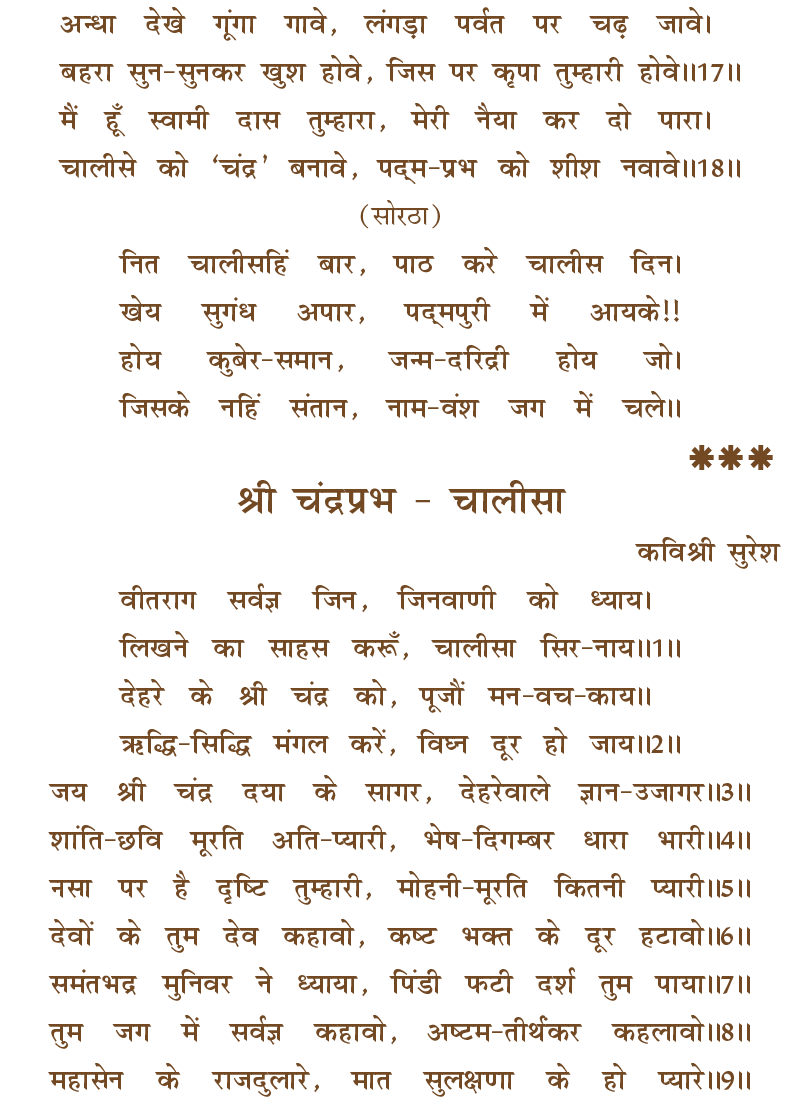 अन्धा देखे गूंगा गावे, लंगड़ा पर्वत पर चढ़ जावे।
बहरा सुन-सुनकर खुश होवे, जिस पर कृपा तुम्हारी होवे।।17।।
मैं हूँ स्वामी दास तुम्हारा, मेरी नैया कर दो पारा।
चालीसे को ‘चंद्र’ बनावे, पद्‌म-प्रभ को शीश नवावे।।18।।
(सोरठा)
नित चालीसहिं बार, पाठ करे चालीस दिन।
खेय सुगंध अपार, पद्‌मपुरी में आयके!!
होय कुबेर-समान, जन्म-दरिद्री होय जो।
जिसके नहिं संतान, नाम-वंश जग में चले।।
✸✸✸
श्री चंद्रप्रभ - चालीसा
कविश्री सुरेश
वीतराग सर्वज्ञ जिन, जिनवाणी को ध्याय।
लिखने का साहस करूँ, चालीसा सिर-नाय।।1।।
देहरे के श्री चंद्र को, पूजौं मन-वच-काय।।
ऋद्धि-सिद्धि मंगल करें, विघ्न दूर हो जाय।।2।।
जय श्री चंद्र दया के सागर, देहरेवाले ज्ञान-उजागर।।3।।
शांति-छवि मूरति अति-प्यारी, भेष-दिगम्बर धारा भारी।।4।।
नसा पर है दृष्टि तुम्हारी, मोहनी-मूरति कितनी प्यारी।।5।।
देवों के तुम देव कहावो, कष्ट भक्त के दूर हटावो।।6।।
समंतभद्र मुनिवर ने ध्याया, पिंडी फटी दर्श तुम पाया।।7।।
तुम जग में सर्वज्ञ कहावो, अष्टम-तीर्थंकर कहलावो।।8।।
महासेन के राजदुलारे, मात सुलक्षणा के हो प्यारे।।9।।